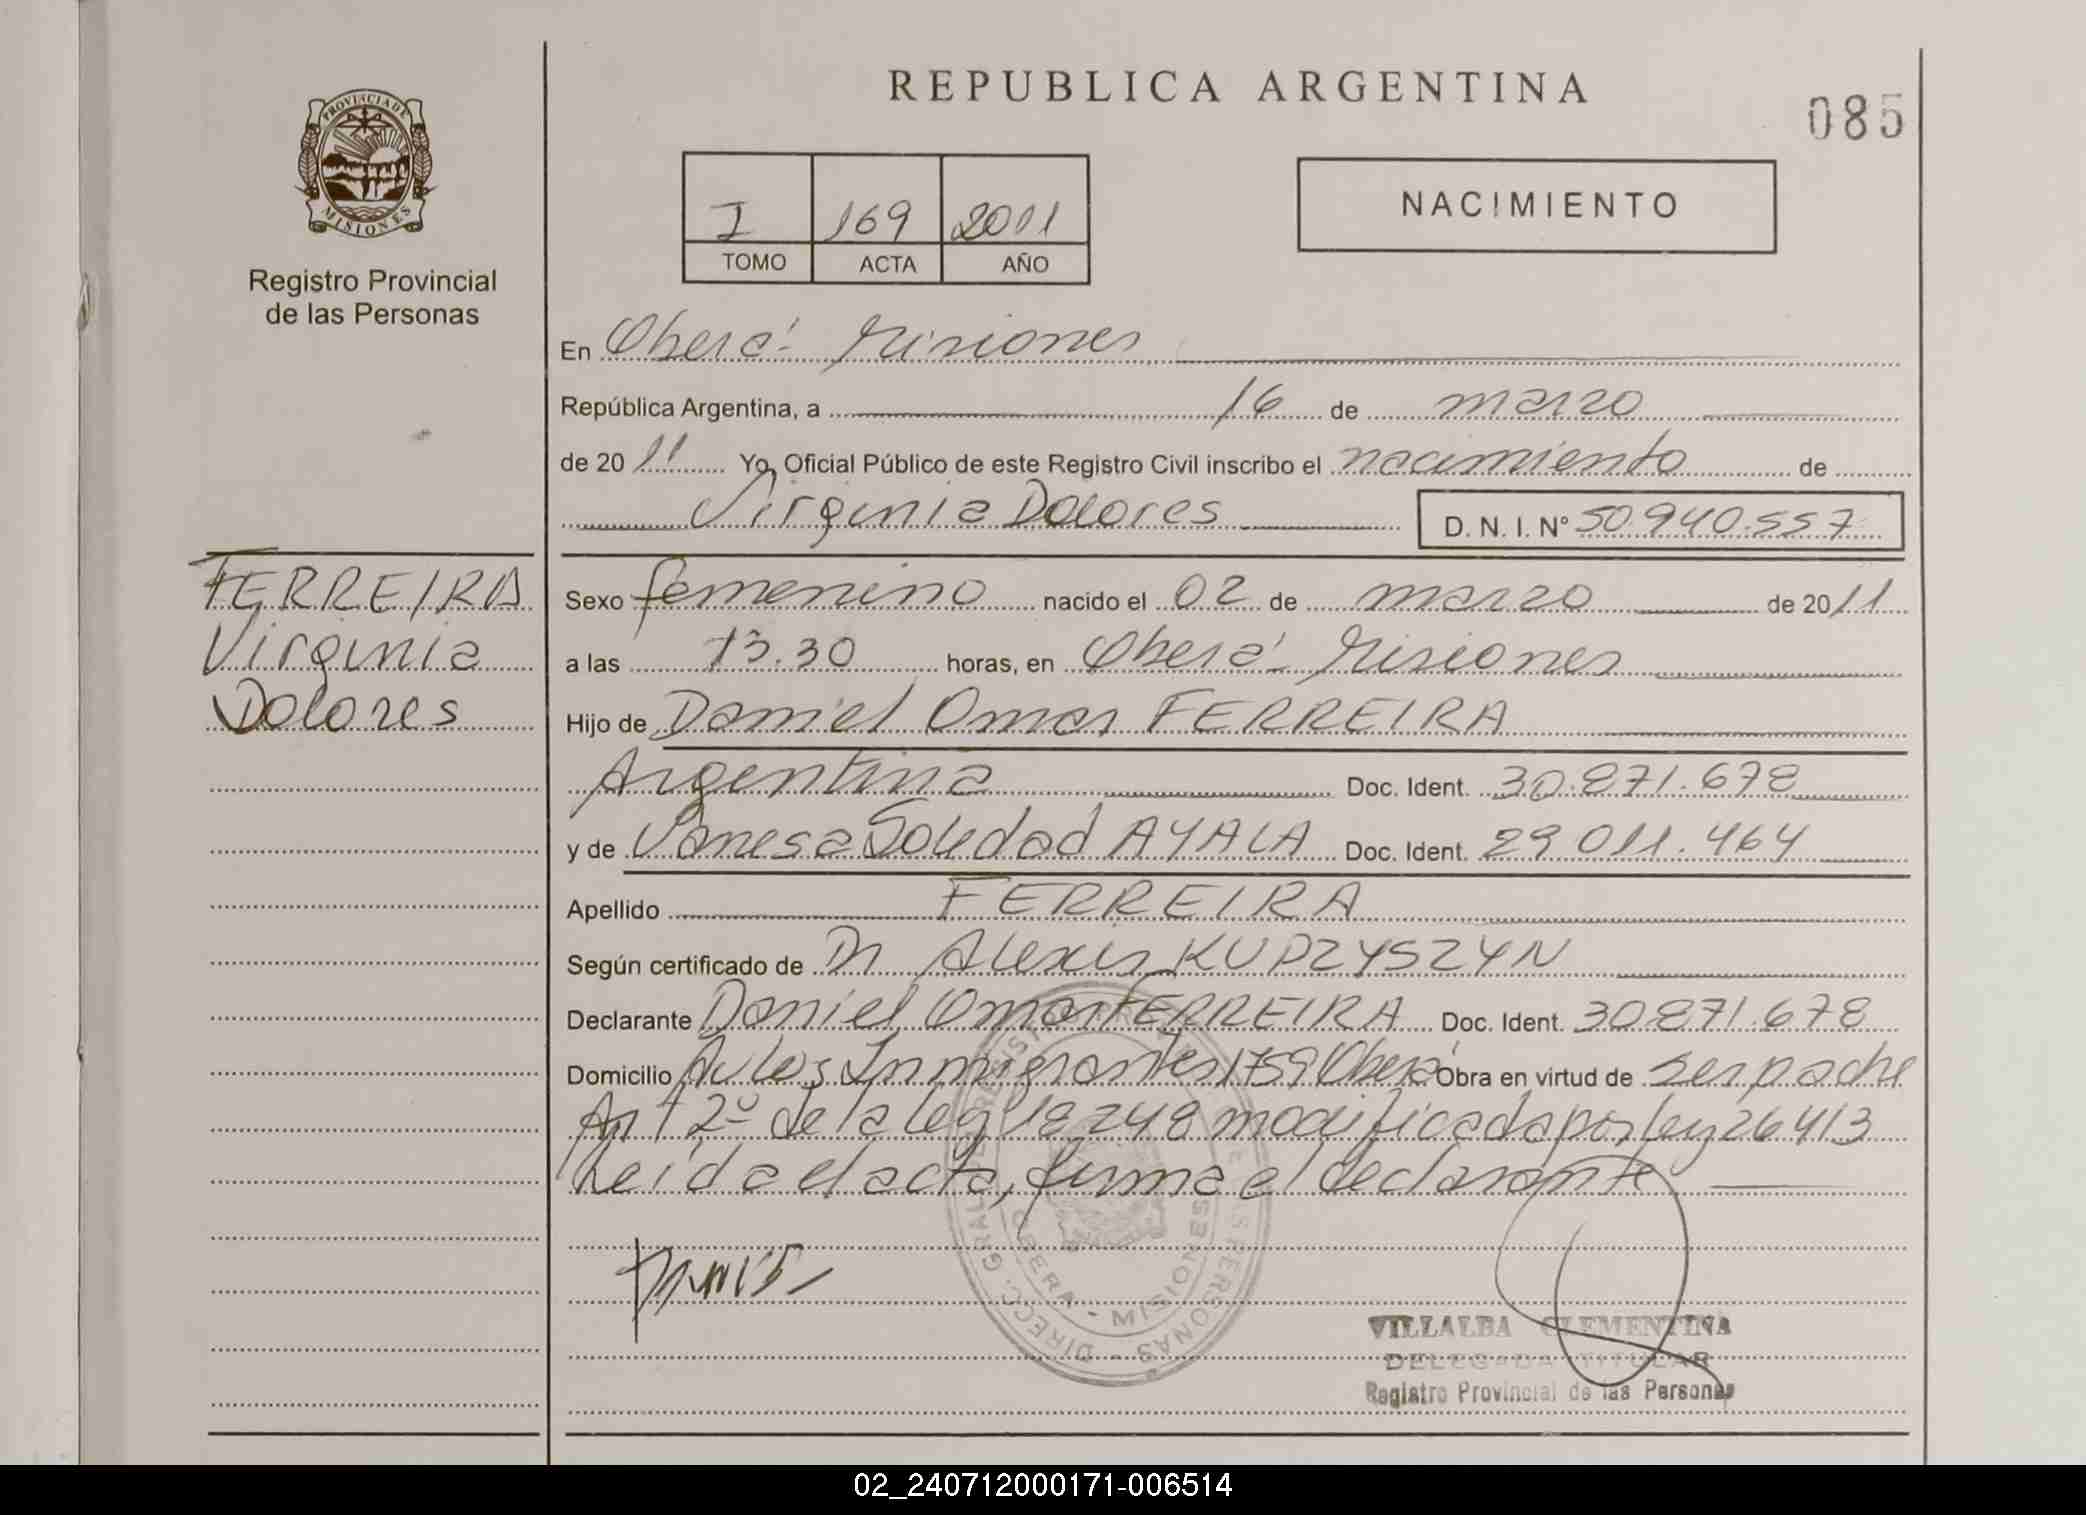 REPUBLICA ARGENTINA
085
PROVINCIA DE
MISIONES
Registro Provincial
de las Personas
I 169 2011
TOMO ACTA AÑO
NACIMIENTO
En Oberá - Misiones
República Argentina, a 16 de marzo
de 20 11 Yo, Oficial Público de este Registro Civil inscribo el nacimiento de
Virginia Dolores D. N. I. Nº 50.940.557
FERREIRA
Virginia
Dolores
Sexo femenino nacido el 02 de marzo de 20 11
a las 13.30 horas, en Oberá - Misiones
Hijo de Daniel Omar FERREIRA
Argentina Doc. Ident. 30.871.678
y de Vanesa Soledad AYALA Doc. Ident. 29.011.464
Apellido FERREIRA
Según certificado de Dr Alexis KUPZYSZYN
Declarante Daniel Omar FERREIRA Doc. Ident. 30.871.678
Domicilio Av Los Inmigrantes 1759 Oberá Obra en virtud de ser padre
Art 2º de la ley 18248 modificada por ley 26413
Leída el acta, firma el declarante
DIRECC. GRAL. DE REGISTRO PROV. DE LAS PERSONAS
OBERA - MISIONES
VILLALBA CLEMENTINA
DELEGADA TITULAR
Registro Provincial de las Personas
02_240712000171-006514